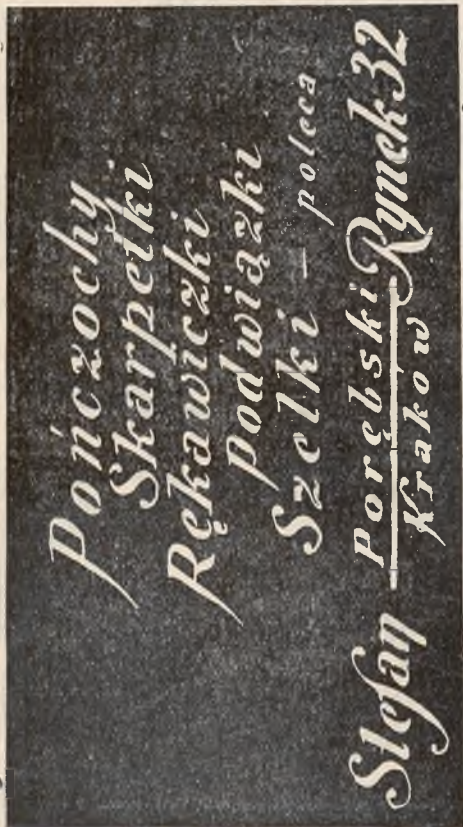 Pończochy
Skarpetki
Rękawiczki
Podwiązki
Szelki — poleca
Stefan Porębski Rynek 32
Kraków